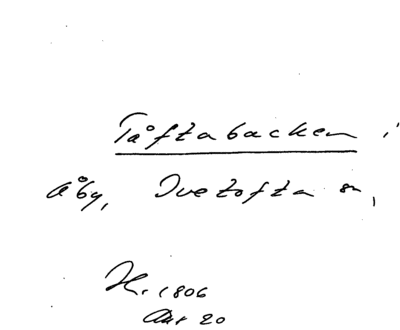 Tåftabacken i
Åby, Ivetofta sn,
H. 1806
Akt 20